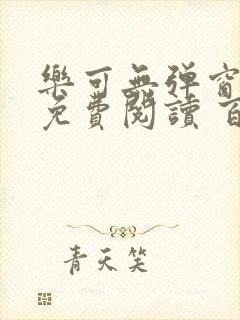 樂可無弹窗
免費閱讀 百
青天笑